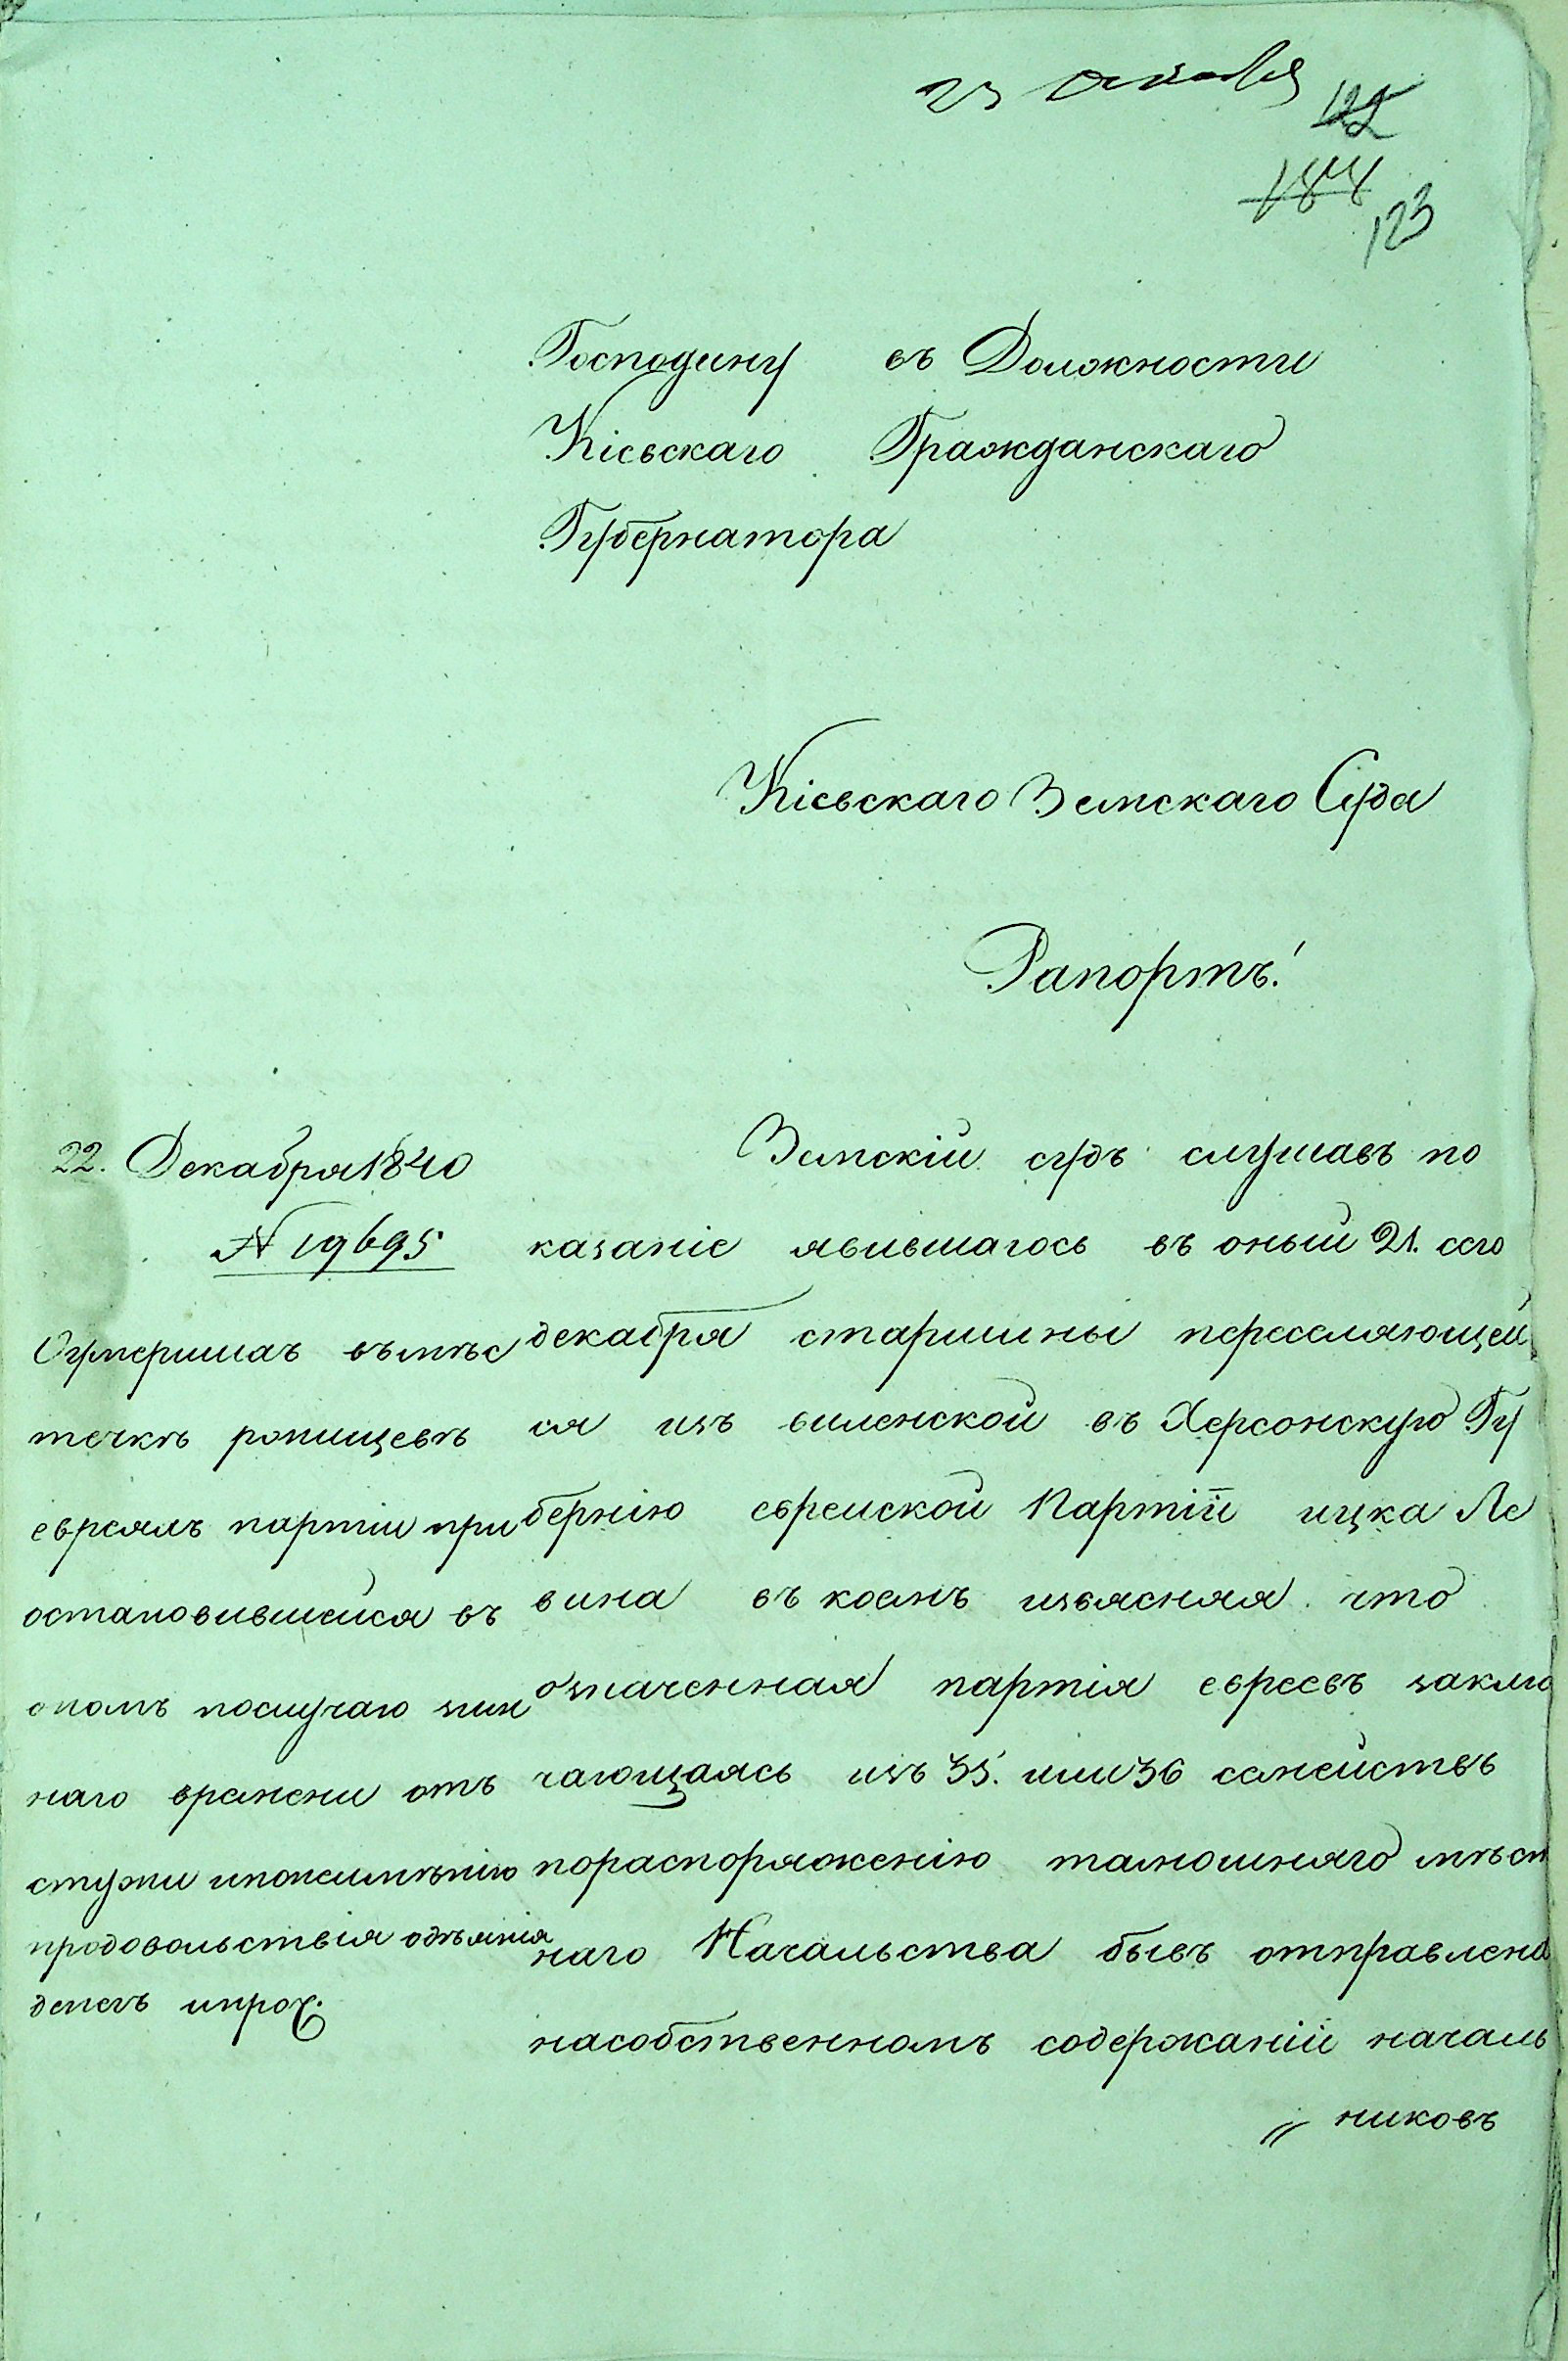 23 декабря
122
188
123
Господину въ Должности
Кіевскаго Гражданскаго
Губернатора
Кіевскаго Земскаго Суда
Рапортъ!
22. Декабря 1840
№ 19695
Оумершихъ вымѣс
течкѣ ропищевѣ
евреяхъ партіи при
остановившейся въ
ономъ послучаю зим
наго времени отъ
стужи инеимѣнію
продовольствія одѣянія
денегъ ипроч.
Земскій судъ слушавъ по
казаніе явившагось въ оный 21. сего
декабря старшины переселяющей
ся изъ виленской въ Херсонскую Гу
бернію еврейской Партіи ицка Ле
вина въ коемъ изъясняя что
означенная партія евреевъ заклю
чающаясь изъ 35. или 36 семействъ
пораспоряженію тамошняго мѣст
наго Начальства бывъ отправлена
насобственномъ содержаніи началь
// никовъ